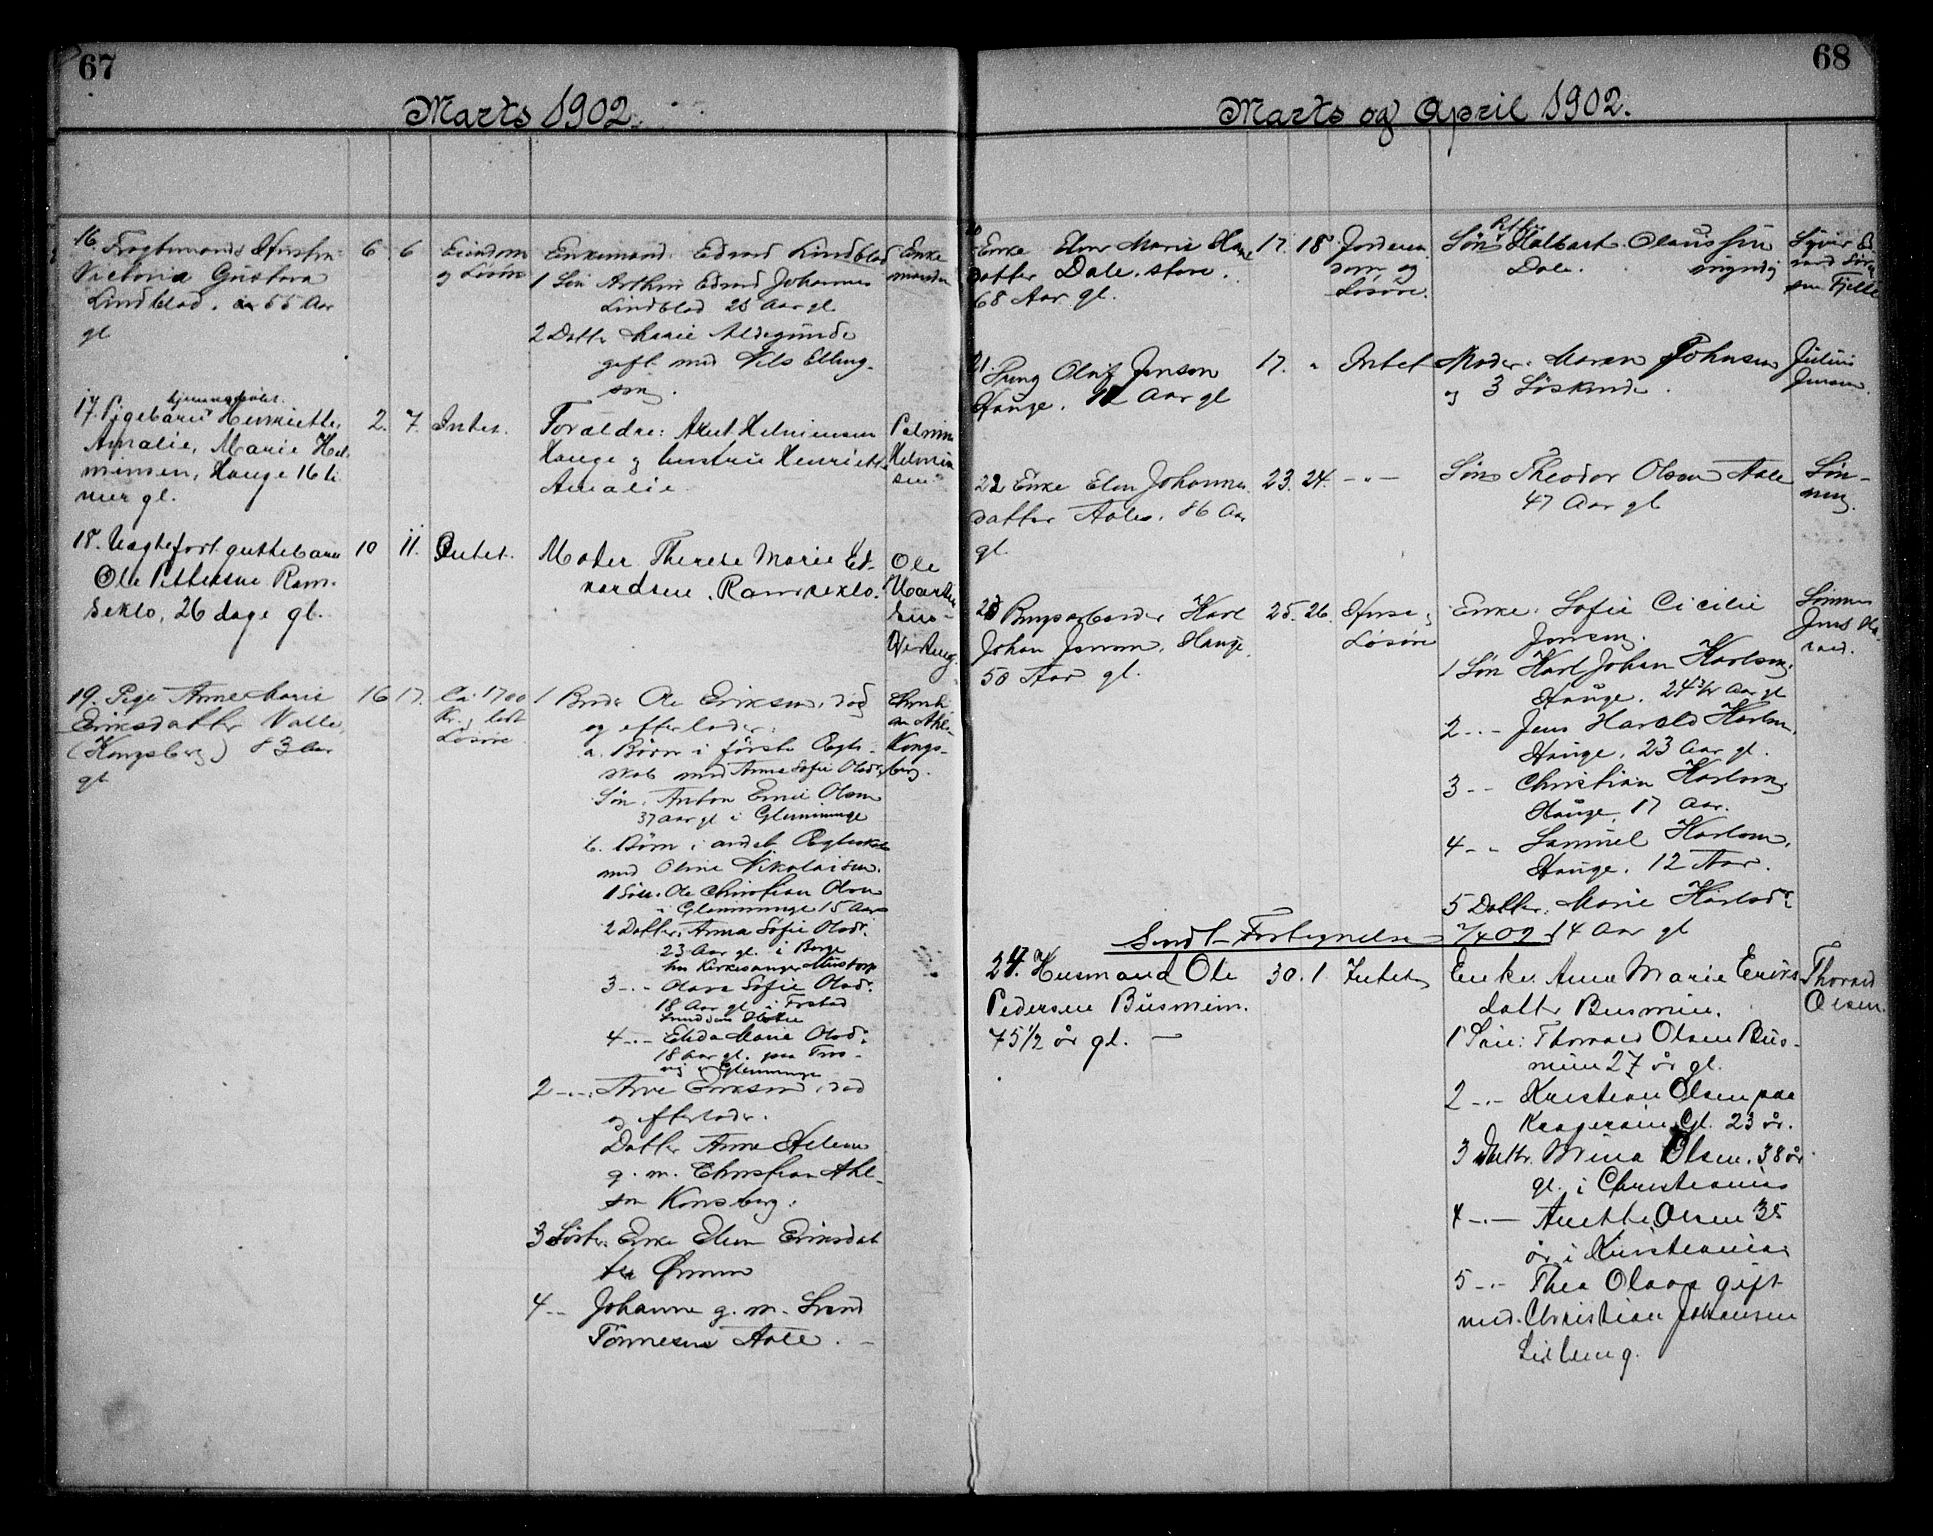 67
Marts 1902.
16. Fragtmands Hustru
Victoria Gustava
Lindblad. 55 Aar
gl
6 6
Eiendom
og Løsøre
Enkemand: Edvard Lindblad
1 Søn Arthur Edvard Johannes
Lindblad 25 Aar gl
2 Datter Marie Aldegunde
gift med Nils Elling-
sen.
Enke
manden
17. Pigebarn Henriette
Amalie, Marie Hel-
minsen, Hauge 16 ti
mer gl.
2. 7. Intet.
Forældre: Axel Helminsen
Hauge og hustru Henriette
Amalie
Helmin
sen
18. Uægtefødt guttebarn
Ole Pettersen Ram-
seklo, 26 dage gl.
10 11. Intet.
Moder Therese Marie Ed-
vardsen, Ramseklo.
Ole
Marti
sen
19. Pige Anne Marie
Eriksdatter Valle,
(Kongsberg) 83 Aar
gl
16 17.
Ca 1700
Kr. lidt
Løsøre
1 Broder Ole Eriksen, død
og efterlader:
a. Børn i første Ægte-
skab med Anne Sofie Olsdr.
Søn. Anton Emil Olsen
37 Aar gl i Glemminge
b. Børn i andet Ægteskab
med Oline Nikolaisen.
1 Søn. Ole Christian Olsen
i Glemminge 15 Aar
2 Datter. Anna Sofie Olsdr.
23 Aar gl. i Borge
hos Kirkesanger
3 -"- Olava Sofie Olsdr.
18 Aar gl. i
4 -"- Elida Marie Olsdr.
18 Aar gl. paa Tros-
vig i Glemminge
2 -"- Arne Eriksen, død
og efterlader.
Datter Anne Helene
g. m. Christian Ahl-
sen Konsberg.
3 Søster. Enke Elen Eriksdat
ter Ørmen
4 -"- Johanne g. m. Svend
Tønnesen Aale. -
Christi
an Ahl-
Kongs-
berg.
68
Marts og April 1902.
20
Enke Elen Marie Han
datter Dale, store.
68 Aar gl.
17. 18
Jordeien
dom og
Løsøre.
Søn Halbart Olaussen
Dale. myndig
Syver Ed
vard Søren
sen Fjelle
21. Ung Oluf Jenson
Hauge. Aar gl
17. " Intet
Moder. Maren Johnsen
og 3 Søskende.
Julius
Jensen.
22 Enke Elen Johannes
datter Aale. 86 Aar
gl.
23. 24. -"-
Søn Theodor Olsen Aale
47 Aar gl
Søn-
nen.
23 Brugsarbeider Karl
Johan Jensen, Hauge.
50 Aar gl.
25. 26.
Huse og
Løsøre
Enke. Sofie Cicilie
Jensen.
1 Søn Karl Johan Karlsen,
Hauge. 24 1/2 Aar gl
2 -"- Jens Harald Karlsen,
Hauge, 23 Aar gl.
3 -"- Christian Karlsen,
Hauge, 17 Aar.
4 -"- Samuel Karlsen,
Hauge, 12 Aar.
5 Datter. Marie Karlsdr.
14 Aar gl
Sønnen
Jens Ha-
rald.
Sendt Fortegnelse 2/4 02
24. Husmand Ole
Pedersen Busmein.
75 1/2 år gl. -
30. 1. Intet
Enke. Anne Marie Eriks
datter Busmein.
1 Søn: Thorvald Olsen Bus-
mein 27 år gl.
2 -"- Kristian Olsen paa
Kragerøin Gl. 23 år.
3 Datter. Mina Olsen. 38 år
gl. i Christiania
4 -"- Anette Olsen 35
år i Kristiania
5 -"- Thea Olava gift
med. Christian Johansen
Thorvald
Olsen.